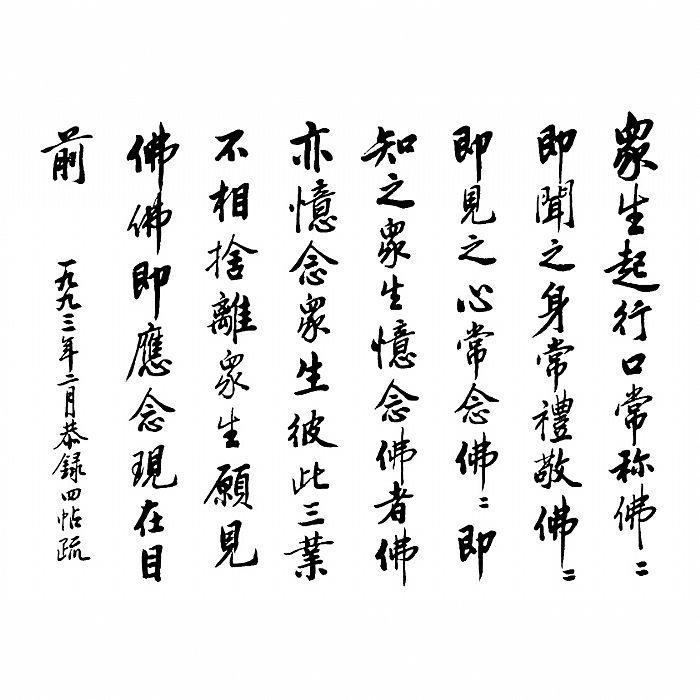 眾生起行口常称佛〻
即聞之身常禮敬佛〻
即見之心常念佛〻即
知之眾生憶念佛者佛
亦憶念眾生彼此三業
不相捨離眾生願見
佛佛即應念現在目
前
一九九三年二月恭録四帖疏